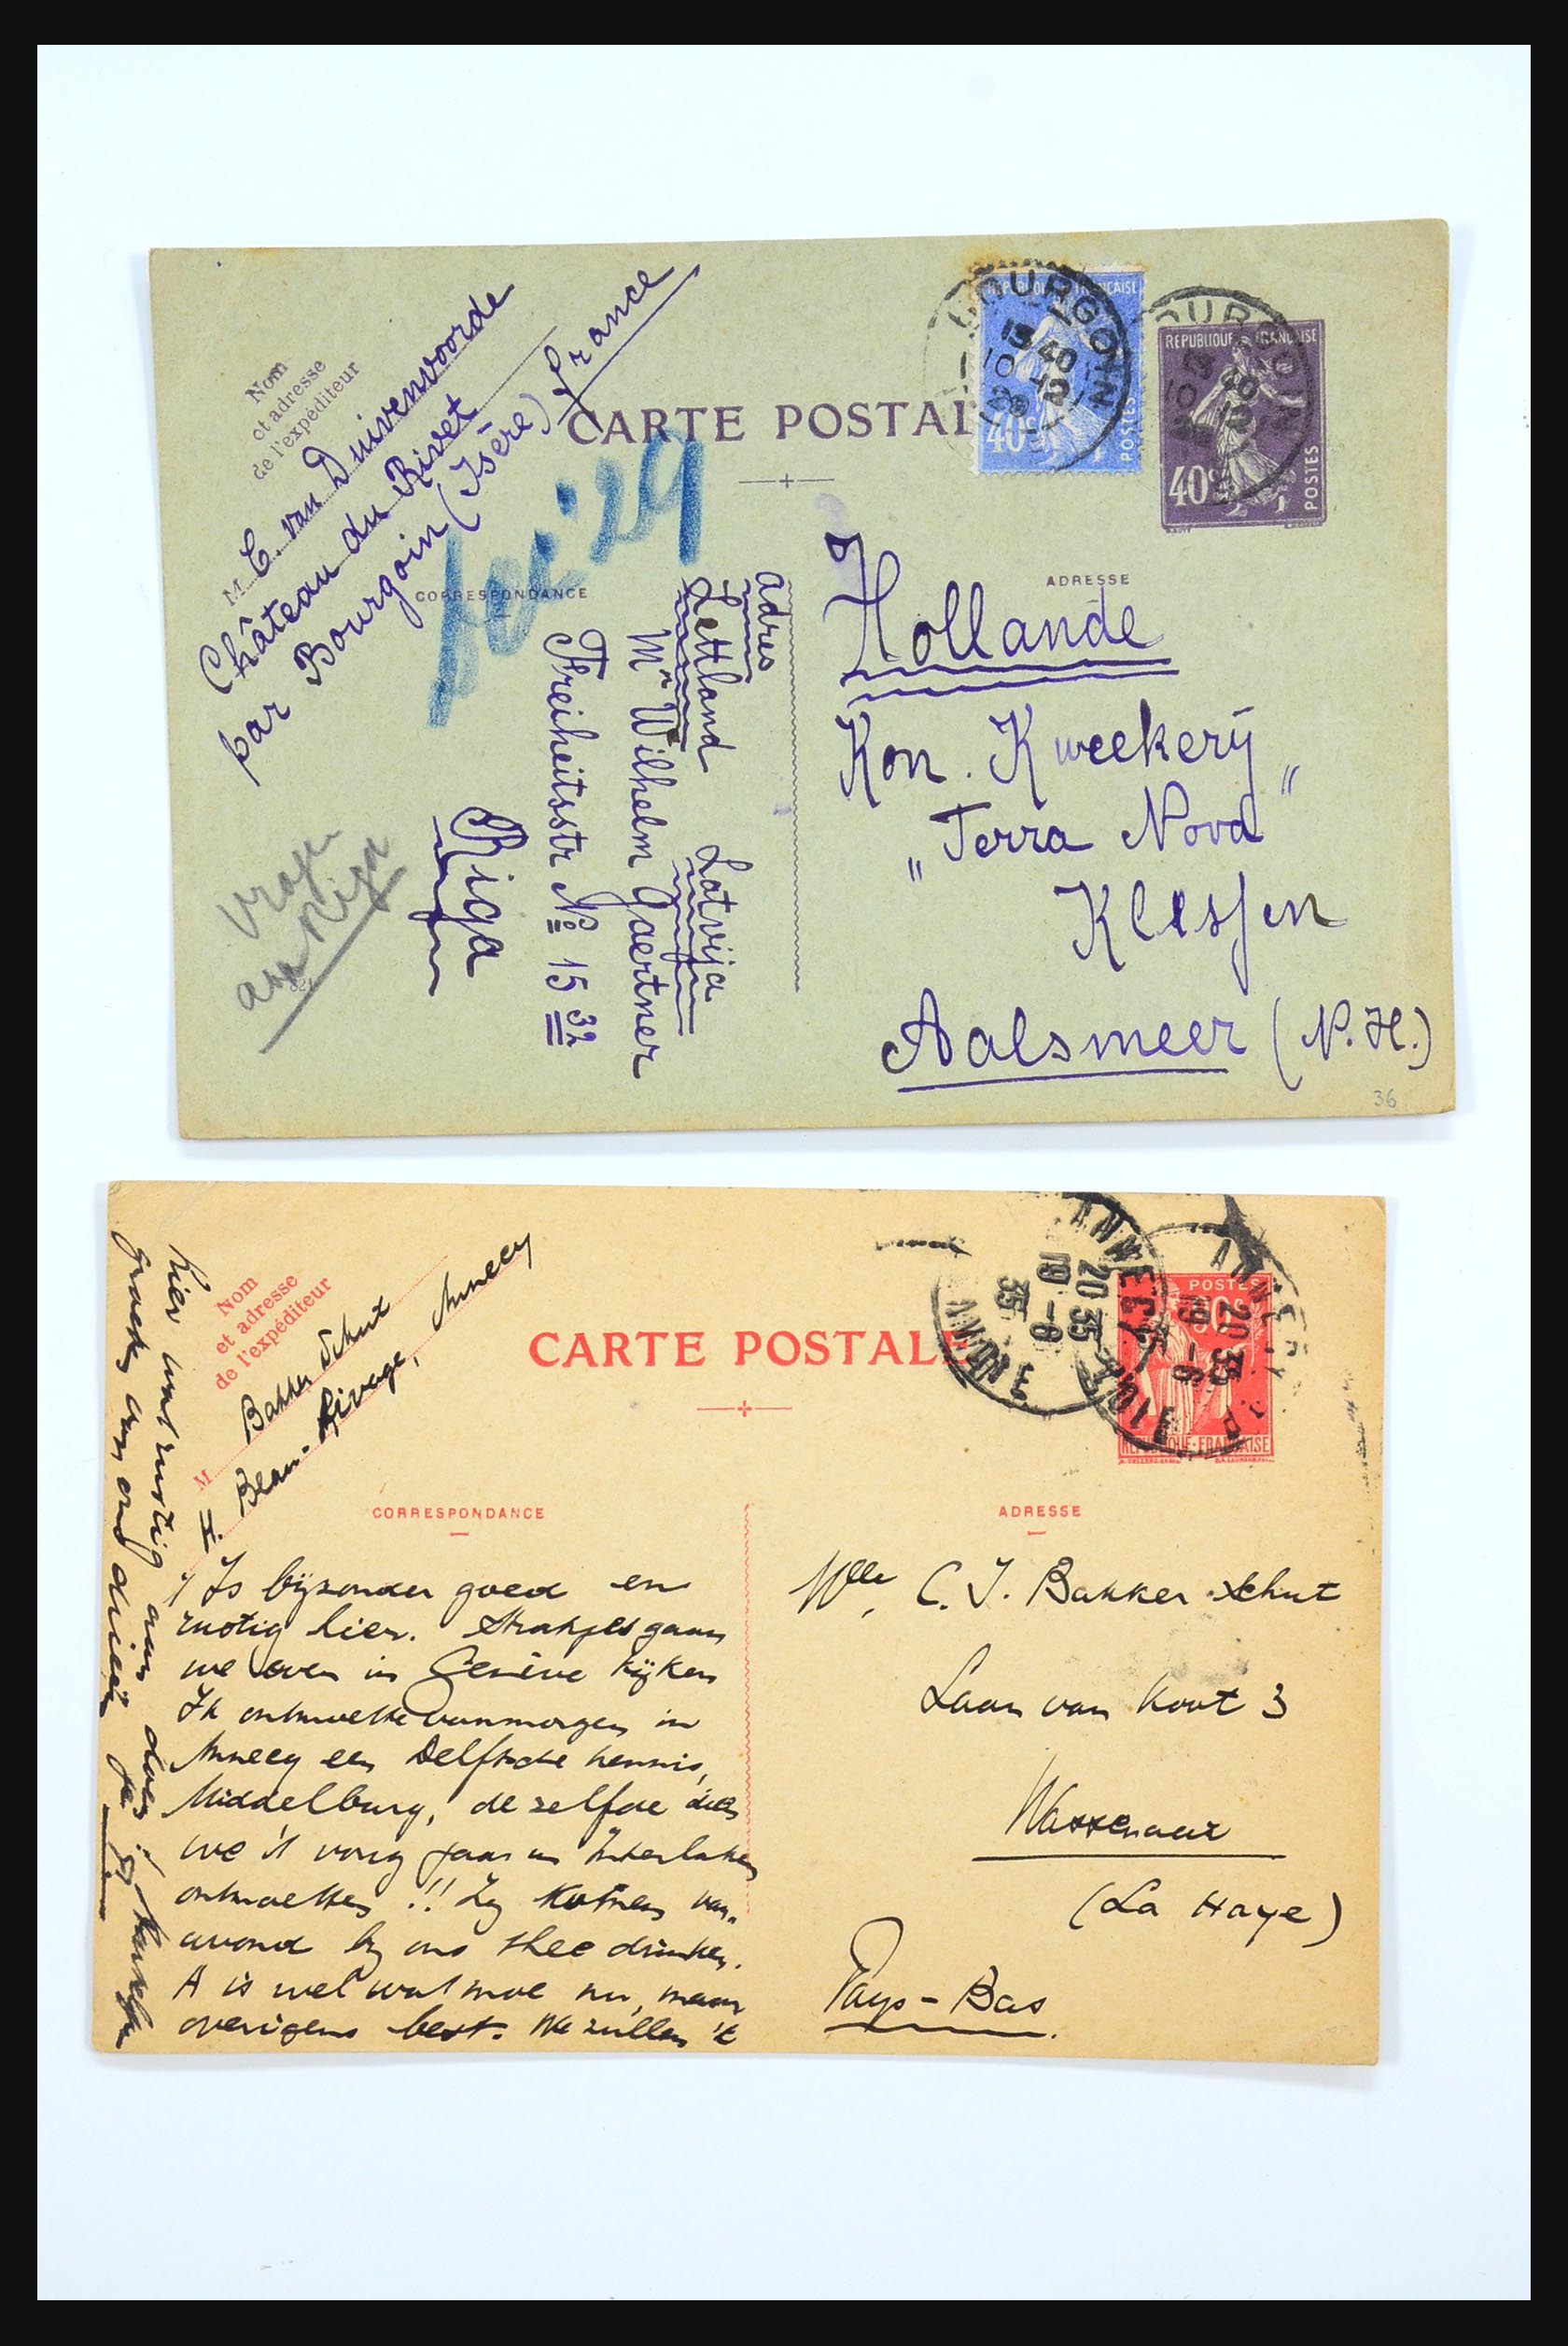 Nom
et adresse
de l'expéditeur
M. C. van Duivenvoorde
Château du Rivet
par Bourgoin (Isère) france
CARTE POSTAL
BOURGOIN
RÉPUBLIQUE FRANÇAISE
40c
POSTES
RÉPUBLIQUE FRANÇAISE
40c
POSTES
CORRESPONDANCE
29
adres
Lettland Latvija
Mr Wilhelm Gaertner
Freiheitsstr No 15 32
Riga
vragen
aan Riga
ADRESSE
Hollande
Kon. Kweekerÿ
„Terra Nova"
Klessjen
Aalsmeer (N.H.)
36
Nom
et adresse
de l'expéditeur
M Bakker Schut
H. Beau-Rivage, Annecy
CARTE POSTALE
ANNECY
20 35
19 - 6
35
POSTES
RÉPUBLIQUE-FRANÇAISE
CORRESPONDANCE
't Is bijzonder goed en
rustig hier. Strakjes gaan
we even in Genève kijken
Ik ontmoette vanmorgen in
Annecy een Delftsche kennis,
Middelburg, dezelfde dien
we 't vorig jaar in Interlaken
ontmoetten!! Zij komen van-
avond bij ons thee drinken.
A is wel wat moe nu, maar
overigens best. We zullen 't
hier wat rustig aan doen
ADRESSE
Mlle, C. J. Bakker Schut
Laan van Koot 3
Wassenaar
(La Haye)
Pays-Bas.